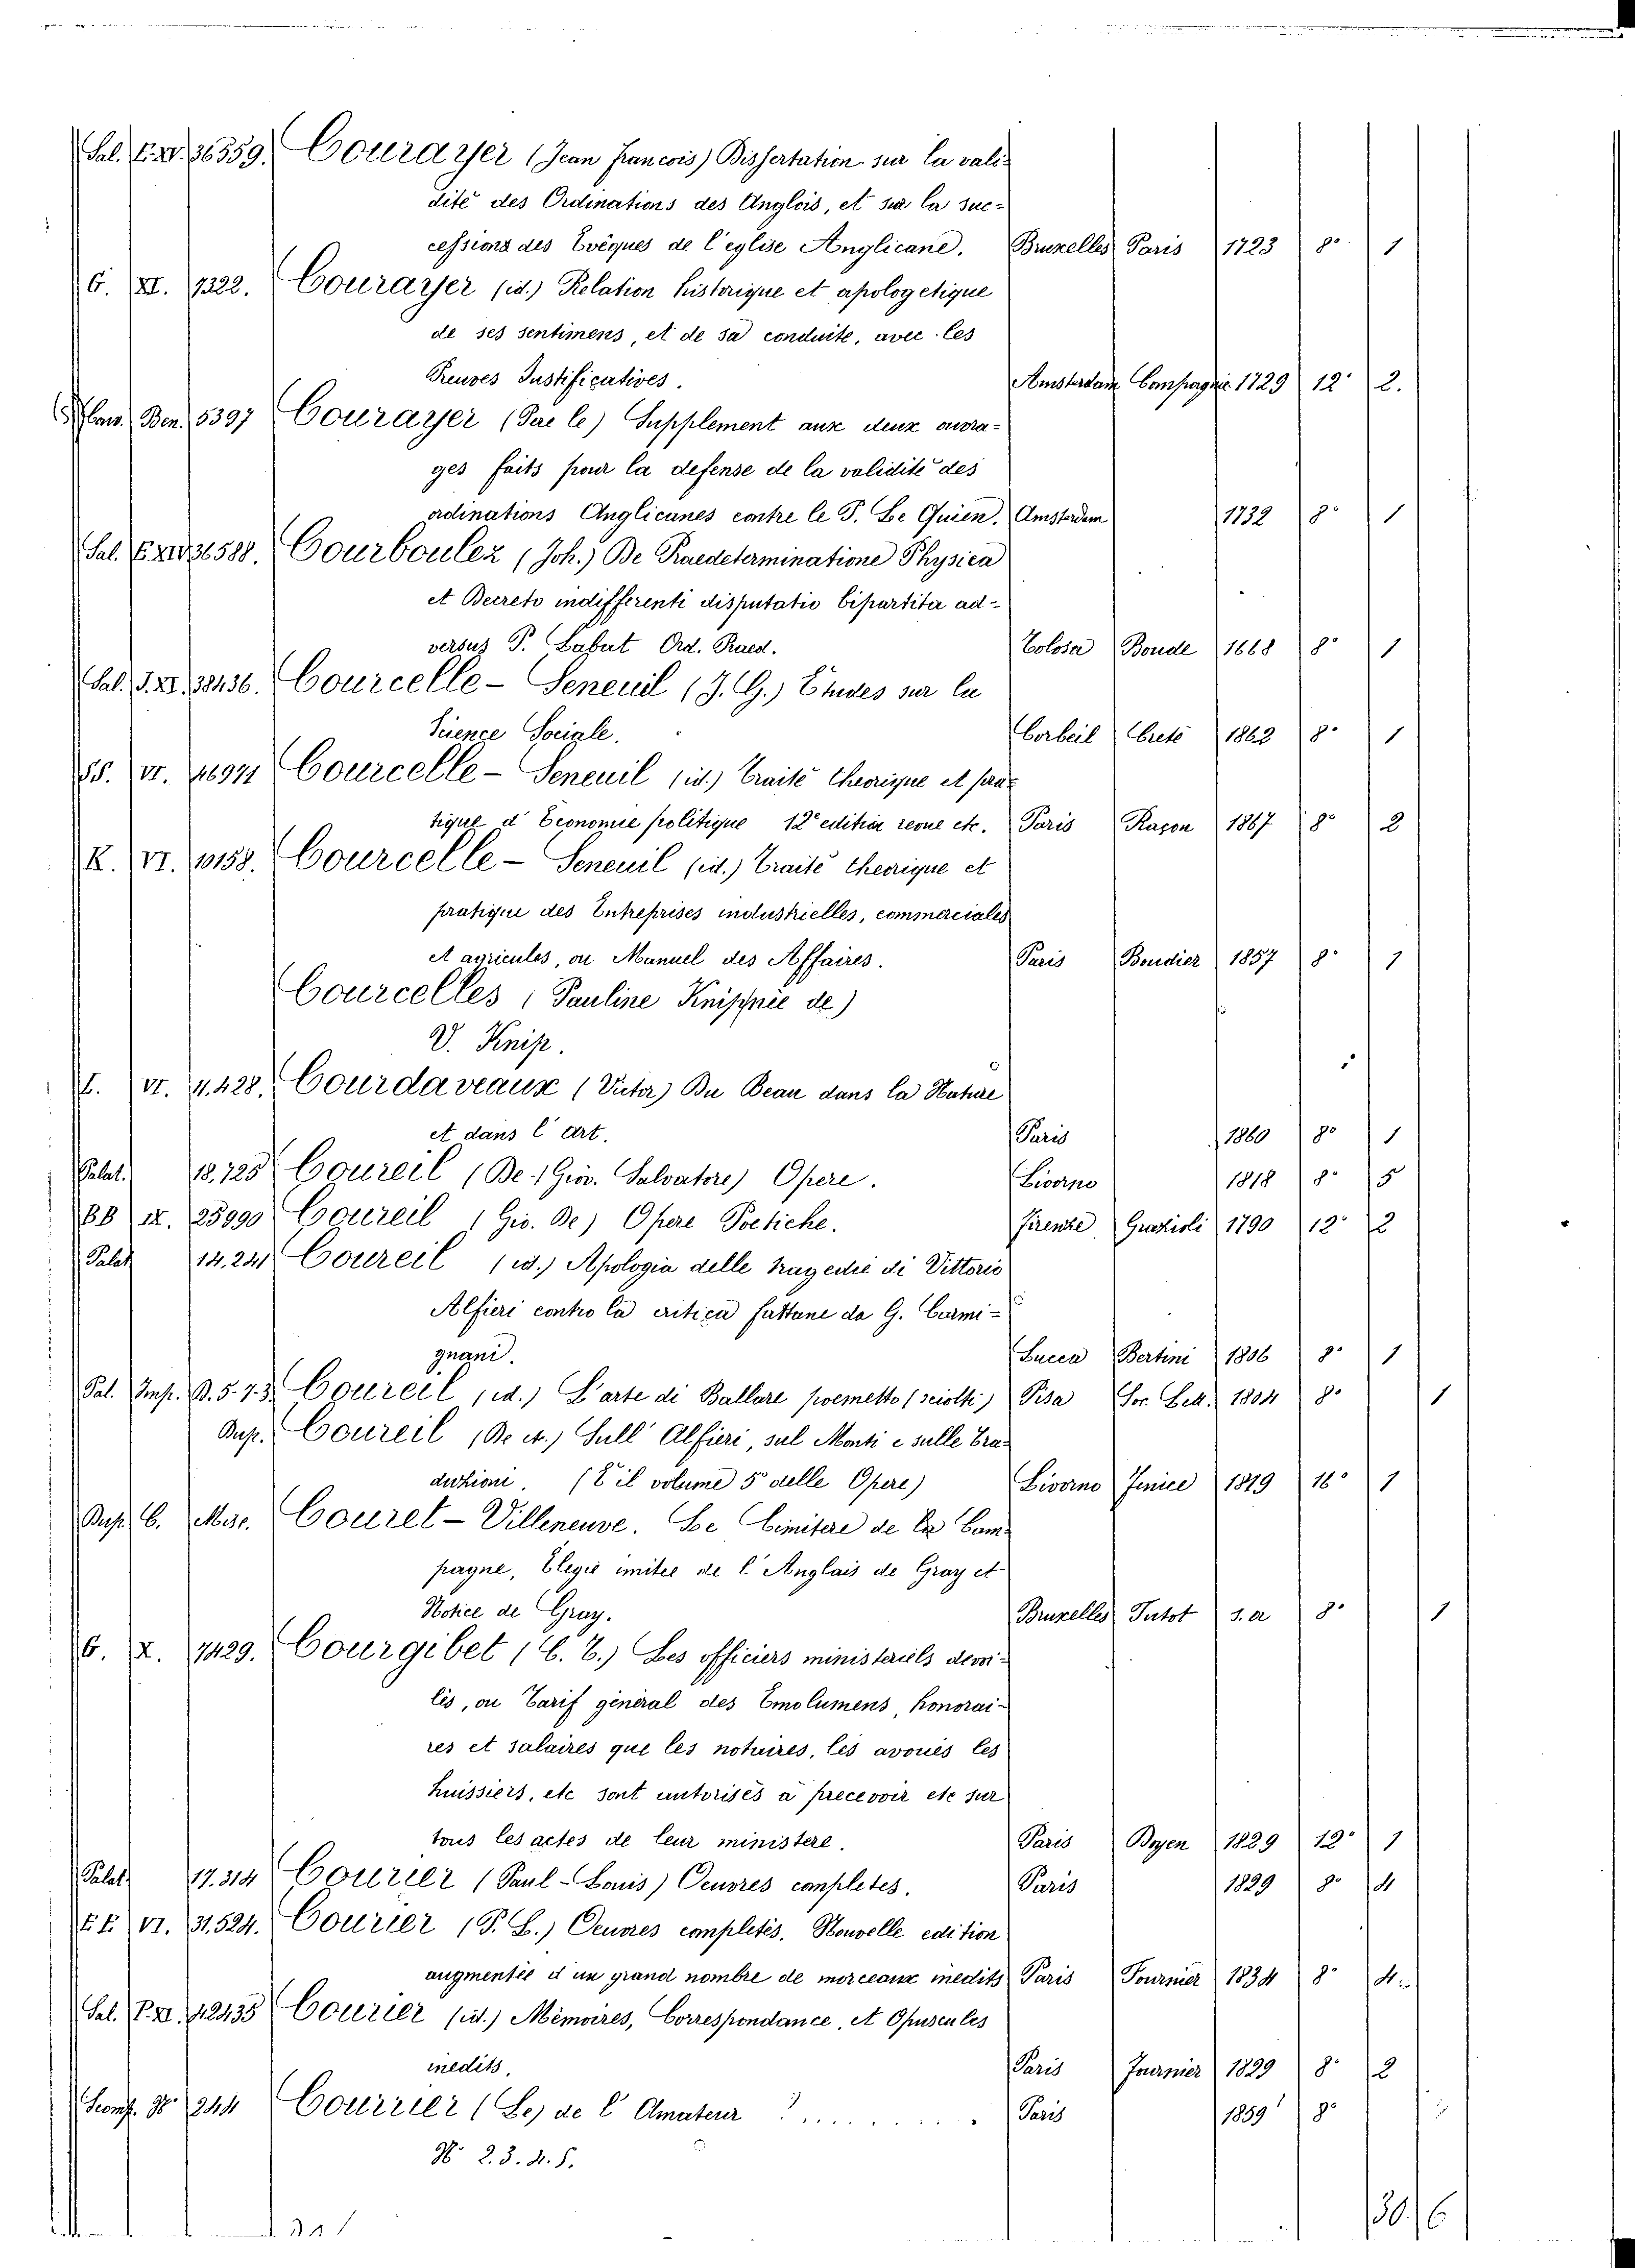 Sal. E. XV. 36559. Courayer (Jean Francois) Dissertation sur la vali-
dité des Ordinations des Anglois, et sur la suc-
cessiona des Evêques de l'eglise Anglicane. Bruxelles Paris 1723 8° 1
G. XI. 1322. Courayer (id.) Relation historique et apologetique
de ses sentimens, et de sa conduite, avec les
Preuves Justificatives. Amsterdam Compagnie 1729 12° 2.
Ben. 5397 Courayer (Par le) Supplement aux deux ouvra-
ges faits pour la defense de la validité des
ordinations Anglicanes contre le P. Le Quien. Amsterdam 1732 8° 1
Sal. E. XIV 36588. Courboulez (Joh.) De Praedeterminatione Physica
et Decreto indifferenti disputatio bipartita ad-
versus P. Labat Ord. Praed. Tolosa Boude 1668 8° 1
Sal. J. XI. 38436. Courcelle-Seneuil (J. G.) Etudes sur la
Science Sociale. Corbeil Creté 1862 8° 1
SS. VI. 46971 Courcelle-Seneuil (id.) Traité theorique et pra-
tique d'Economie politique 12e edition revue etc. Paris Raçon 1867 8° 2
K. VI. 10158. Courcelle-Seneuil (id.) Traité theorique et
pratique des Entreprises industrielles, commerciales
et agricules, ou Manuel des Affaires. Paris Bourdier 1857 8° 1
Courcelles (Pauline Knipnée de)
V. Knip.
I. VI. 4.428. Courdaveaux (Victor) Du Beau dans la Nature
et dans l'Art. Paris 1860 8° 1
Palat. 18.725 Coureil (De) Giov. Salvatore) Opere. Livorno 1818 8° 5
BB IX. 25990 Coureil (Gio. De) Opere Poetiche. Firenze Grazioli 1790 12° 2
Palat 14.241 Coureil (id.) Apologia delle tragedie di Vittorio
Alfieri contro la critica fattane da G. Carmi-
gnani. Lucca Bertini 1806 8° 1
Pal. Imp. B. 5.7.3. Coureil (id.) L'arte di Ballare poemetto (sciolti) Pisa Soc. Lett. 1804 8° 1
Dup. Coureil (De id.) Sull'Alfieri, sul Monti e sulle Tra-
duzioni. (È il volume 5° delle Opere) Livorno Jenice 1819 16° 1
Dup. C. Misc. Couret-Villeneuve. Le Cimitere de la Cam-
pagne, Elegie imitée de l'Anglais de Gray et
Notice de Gray. Bruxelles Tutot s.a 8° 1
G. X. 7429. Courgibet (E. T.) Les officiers ministeriels devoi-
lés, ou Tarif général des Emolumens, honorai-
res et salaires que les notaires, les avoués les
huissiers, etc sont autorisés a precevoir etc sur
tous les actes de leur ministere. Paris Boyen 1829 12° 1
Palat 17.314 Courier (Paul-Louis) Oeuvres completes. Paris 1829 8° 4
EE VI. 31.524. Courier (P. L.) Oeuvres completés. Nouvelle edition
augmentée d'un grand nombre de morceaux inedits Paris Fournier 1834 8° 4.
Sal. P. XI. 42435 Courier (id.) Mémoires, Correspondance, et Opuscules
inedits. Paris Fournier 1829 8° 2
Scomp. N° 244 Courrier (Le) de l'Amateur ? ......... Paris 1859 8°
N° 2. 3. 4. 5.
30. 6